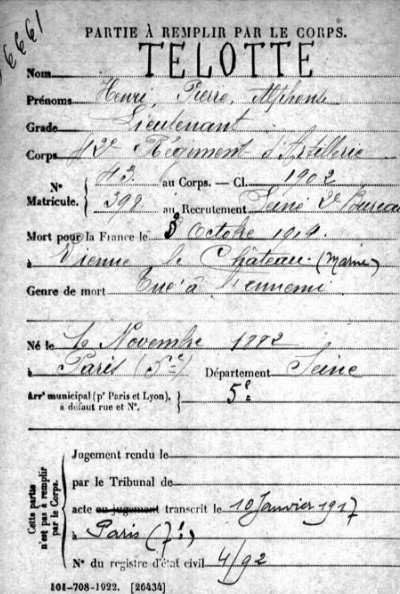 6661
PARTIE À REMPLIR PAR LE CORPS.
Nom TELOTTE
Prénoms Henri, Pierre, Alphonse
Grade Lieutenant
Corps 42e Régiment d'Artillerie
N° Matricule. { 43 au Corps. — Cl. 1902
398 au Recrutement Seine 2e Bureau
Mort pour la France le 8 Octobre 1914
à Vienne le Château (Marne)
Genre de mort Tué à l'ennemi
Né le 10 Novembre 1882
à Paris (5e) Département Seine
Arrt municipal (pr Paris et Lyon), à défaut rue et N°. } 5e
Cette partie n'est pas à remplir par le Corps.
Jugement rendu le
par le Tribunal de
acte ou jugement transcrit le 10 Janvier 1917
à Paris (7e)
N° du registre d'état civil 4/92
101-708-1922. [26434]